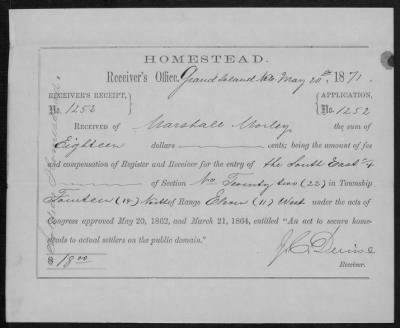 HOMESTEAD.
Receiver's Office, Grand Island Neb. May 20th, 1871.
RECEIVER'S RECEIPT, APPLICATION,
No. 1252 No. 1252
RECEIVED of Marshall Morley the sum of
Eighteen dollars cents; being the amount of fee
and compensation of Register and Receiver for the entry of the South East 1/4
of Section No Twenty two (22) in Township
Fourteen (14) North of Range Eleven (11) West under the acts of
Congress approved May 20, 1862, and March 21, 1864, entitled "An act to secure home-
steads to actual settlers on the public domain."
$18.00
Receiver.